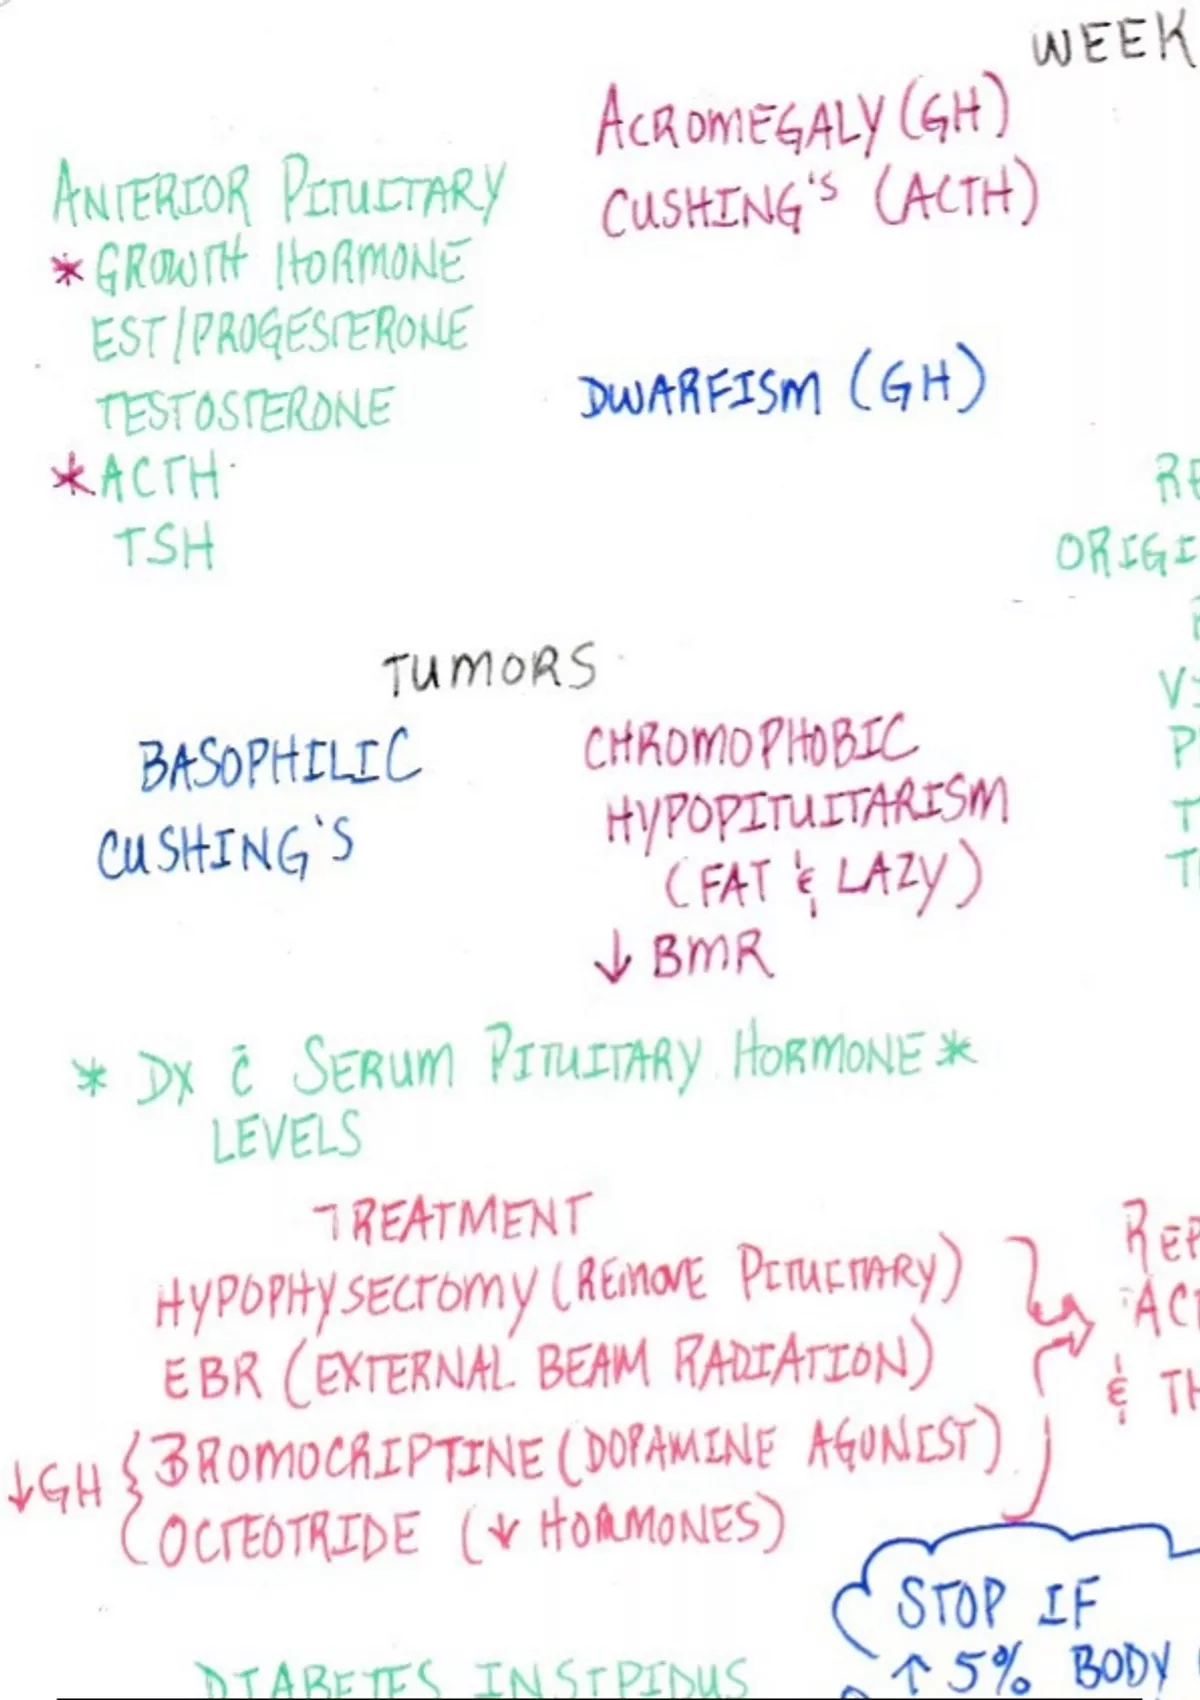 WEEK
ACROMEGALY (GH)
CUSHING'S (ACTH)
ANTERIOR PITUITARY
* GROWTH HORMONE
EST/PROGESTERONE
TESTOSTERONE
* ACTH
TSH
DWARFISM (GH)
TUMORS
BASOPHILIC
CUSHING'S
CHROMOPHOBIC
HYPOPITUITARISM
(FAT & LAZY)
↓ BMR
* DX c̄ SERUM PITUITARY HORMONE *
LEVELS
TREATMENT
HYPOPHYSECTOMY (REMOVE PITUITARY)
EBR (EXTERNAL BEAM RADIATION)
↓GH { BROMOCRIPTINE (DOPAMINE AGONIST)
OCTEOTRIDE (↓ HORMONES)
STOP IF
↑ 5% BODY
DIABETES INSIPIDUS